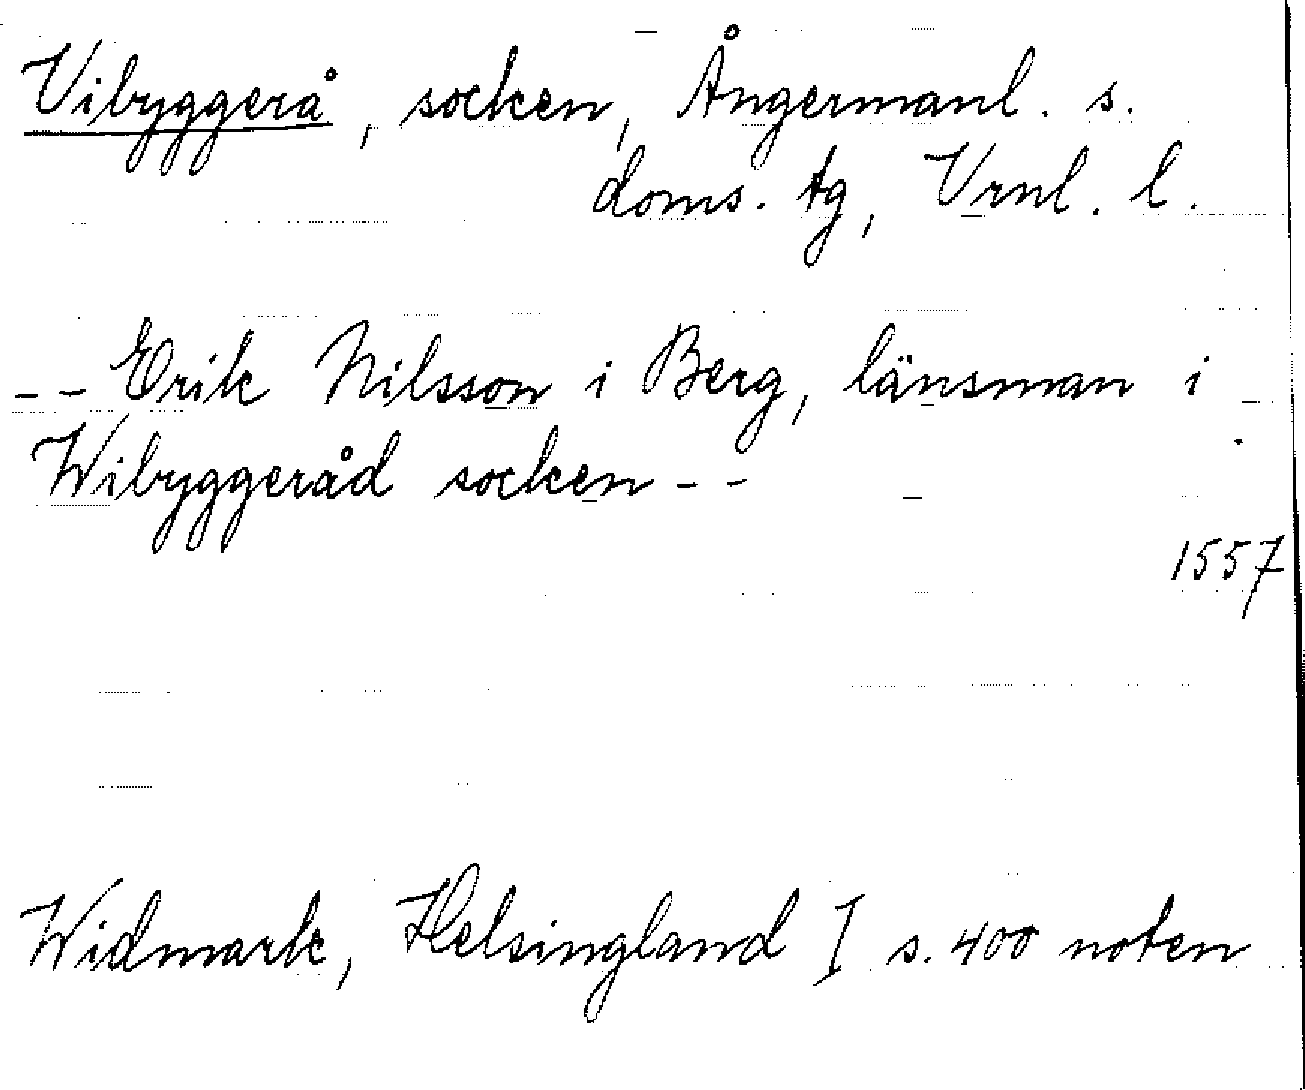 Vibyggerå, socken, Ångermanl. s.
doms. tg, Vrnl. l.
-- Erik Nilsson i Berg, länsman i
Wibyggeråd socken --
1557
Widmark, Helsingland I s. 400 noten